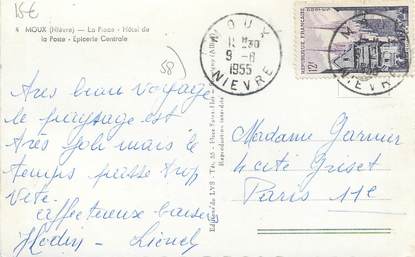 15€
4 MOUX (Nièvre) — La Place - Hôtel de
la Poste - Epicerie Centrale
58)
Très bon voyage
le paysage est
très joli mais le
temps passe trop
vite.
affectueux baiser
Lionel
MOUX
9-8
1955
NIEVRE
REPUBLIQUE FRANÇAISE
POSTES
12F
Reproduction interdite
Madame Garnier
4 cité Griset
Paris 11e